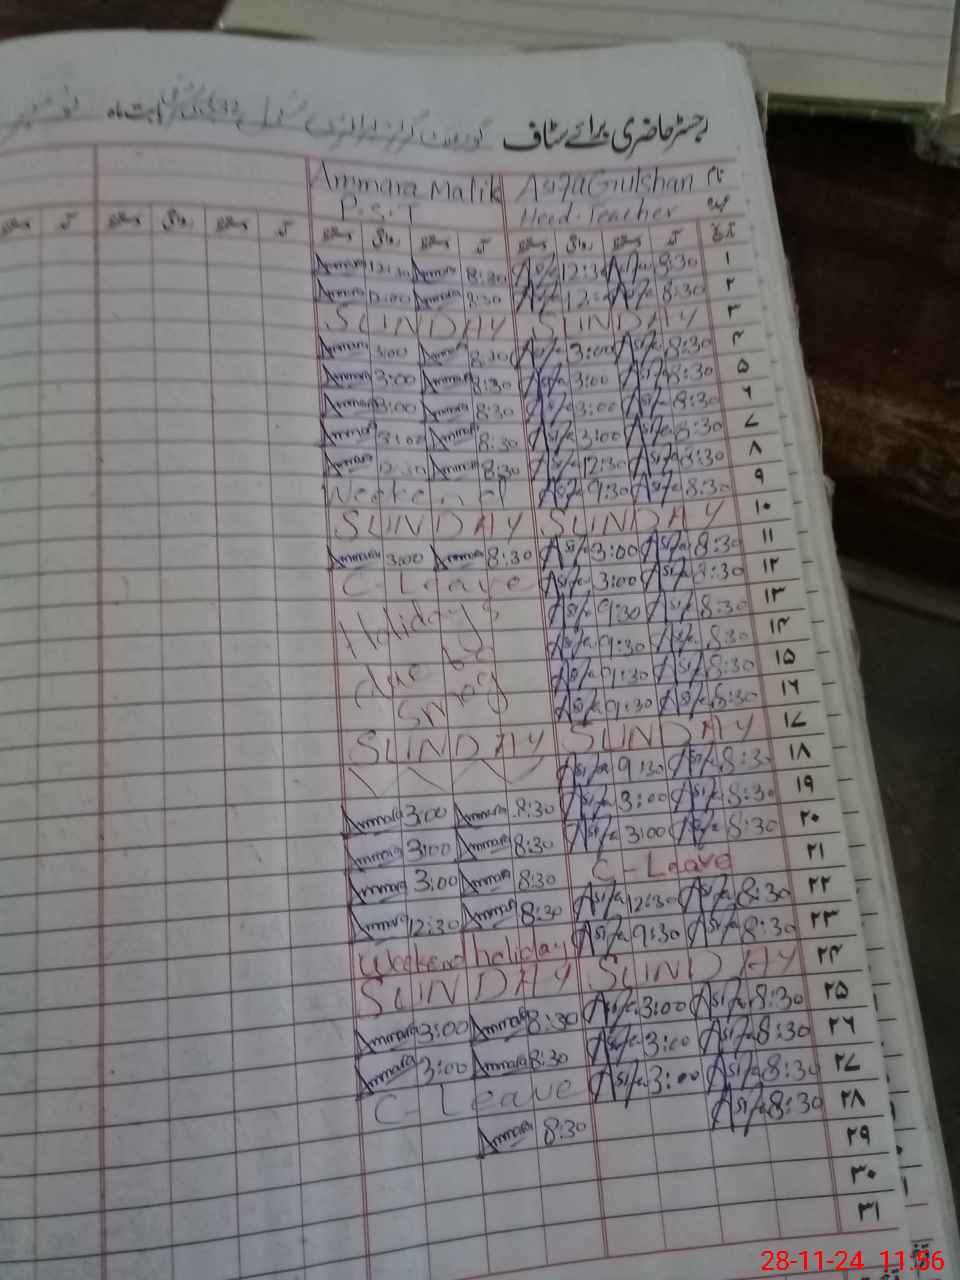 رجسٹر حاضری برائے سٹاف گورنمنٹ گرلز پرائمری سکول بابت ماہ نومبر
Ammara Malik Asifa Gulshan نام
P.S.T Head-Teacher عہدہ
دستخط آمد دستخط روانگی دستخط آمد دستخط روانگی دستخط آمد تاریخ
Ammara 12:30 Ammara 8:30 Asifa 12:30 Asifa 8:30 ۱
Ammara 12:00 Ammara 8:30 Asifa 12: Asifa 8:30 ۲
SUNDAY SUNDAY ۳
Ammara 3:00 Ammara 8:30 Asifa 3:00 Asifa 8:30 ۴
Ammara 3:00 Ammara 8:30 Asifa 3:00 Asifa 8:30 ۵
Ammara 3:00 Ammara 8:30 Asifa 3:00 Asifa 8:30 ۶
Ammara 3:00 Ammara 8:30 Asifa 3:00 Asifa 8:30 ۷
Ammara 12:30 Ammara 8:30 Asifa 12:30 Asifa 8:30 ۸
Weekend Asifa 9:30 Asifa 8:30 ۹
SUNDAY SUNDAY ۱۰
Ammara 3:00 Ammara 8:30 Asifa 3:00 Asifa 8:30 ۱۱
C-Leave Asifa 3:00 Asifa 8:30 ۱۲
Holidays Asifa 9:30 Asifa 8:30 ۱۳
Asifa 9:30 Asifa 8:30 ۱۴
due to Asifa 9:30 Asifa 8:30 ۱۵
smog Asifa 9:30 Asifa 8:30 ۱۶
SUNDAY SUNDAY ۱۷
Asifa 9:30 Asifa 8:30 ۱۸
Ammara 3:00 Ammara 8:30 Asifa 3:00 Asifa 8:30 ۱۹
Ammara 3:00 Ammara 8:30 Asifa 3:00 Asifa 8:30 ۲۰
Ammara 3:00 Ammara 8:30 C-Leave ۲۱
Ammara 12:30 Ammara 8:30 Asifa 12:30 Asifa 8:30 ۲۲
Weekend holiday Asifa 9:30 Asifa 8:30 ۲۳
SUNDAY SUNDAY ۲۴
Ammara 3:00 Ammara 8:30 Asifa 3:00 Asifa 8:30 ۲۵
Ammara 3:00 Ammara 8:30 Asifa 3:00 Asifa 8:30 ۲۶
C-Leave Asifa 3:00 Asifa 8:30 ۲۷
Ammara 8:30 Asifa 8:30 ۲۸
۲۹
۳۰
۳۱
28-11-24 11:56